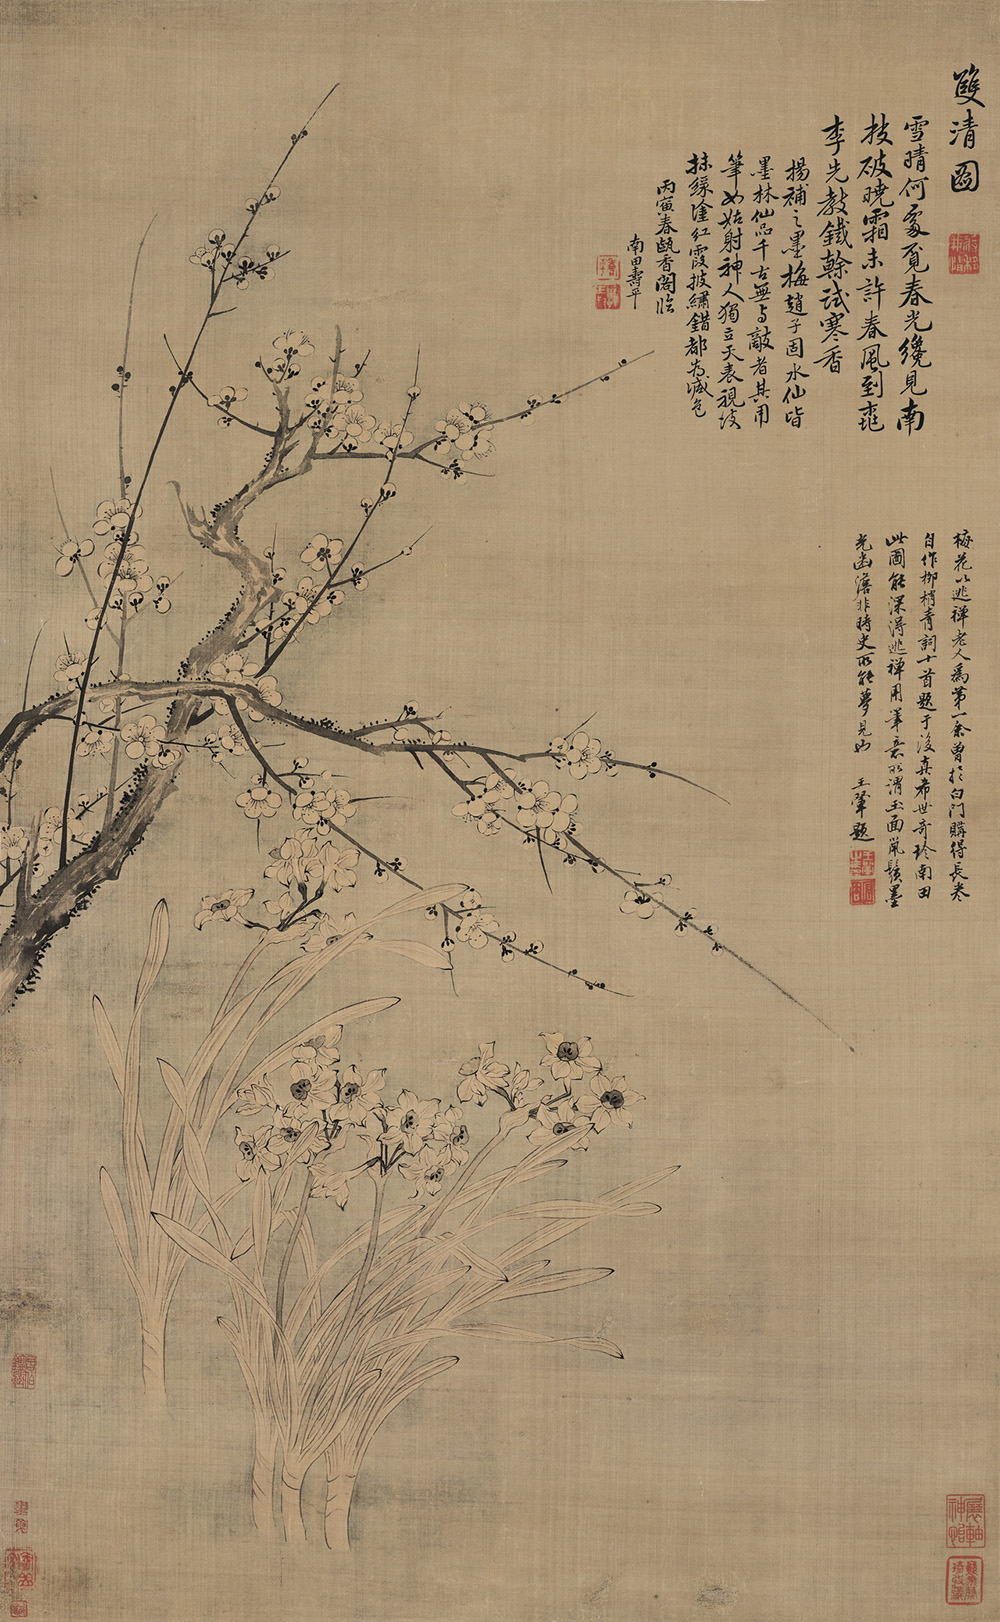 雙清圖
雪晴何處覓春光纔見南
枝破曉霜未許春風到桃
李先教鐵幹試寒香
揚補之墨梅趙子固水仙皆
墨林仙品千古無與敵者其用
筆如姑射神人獨立天表視
抹綠塗紅霞披繡錯都為減色
丙寅春甌香閣臨
南田壽平
梅花以逃禪老人為第一余曾於白門購得長卷
自作柳梢青詞十首題于後真希世奇珍南田
此圖能深得逃禪用筆意所謂玉面鬚墨
光幽澹非時史所能夢見也
王翬題